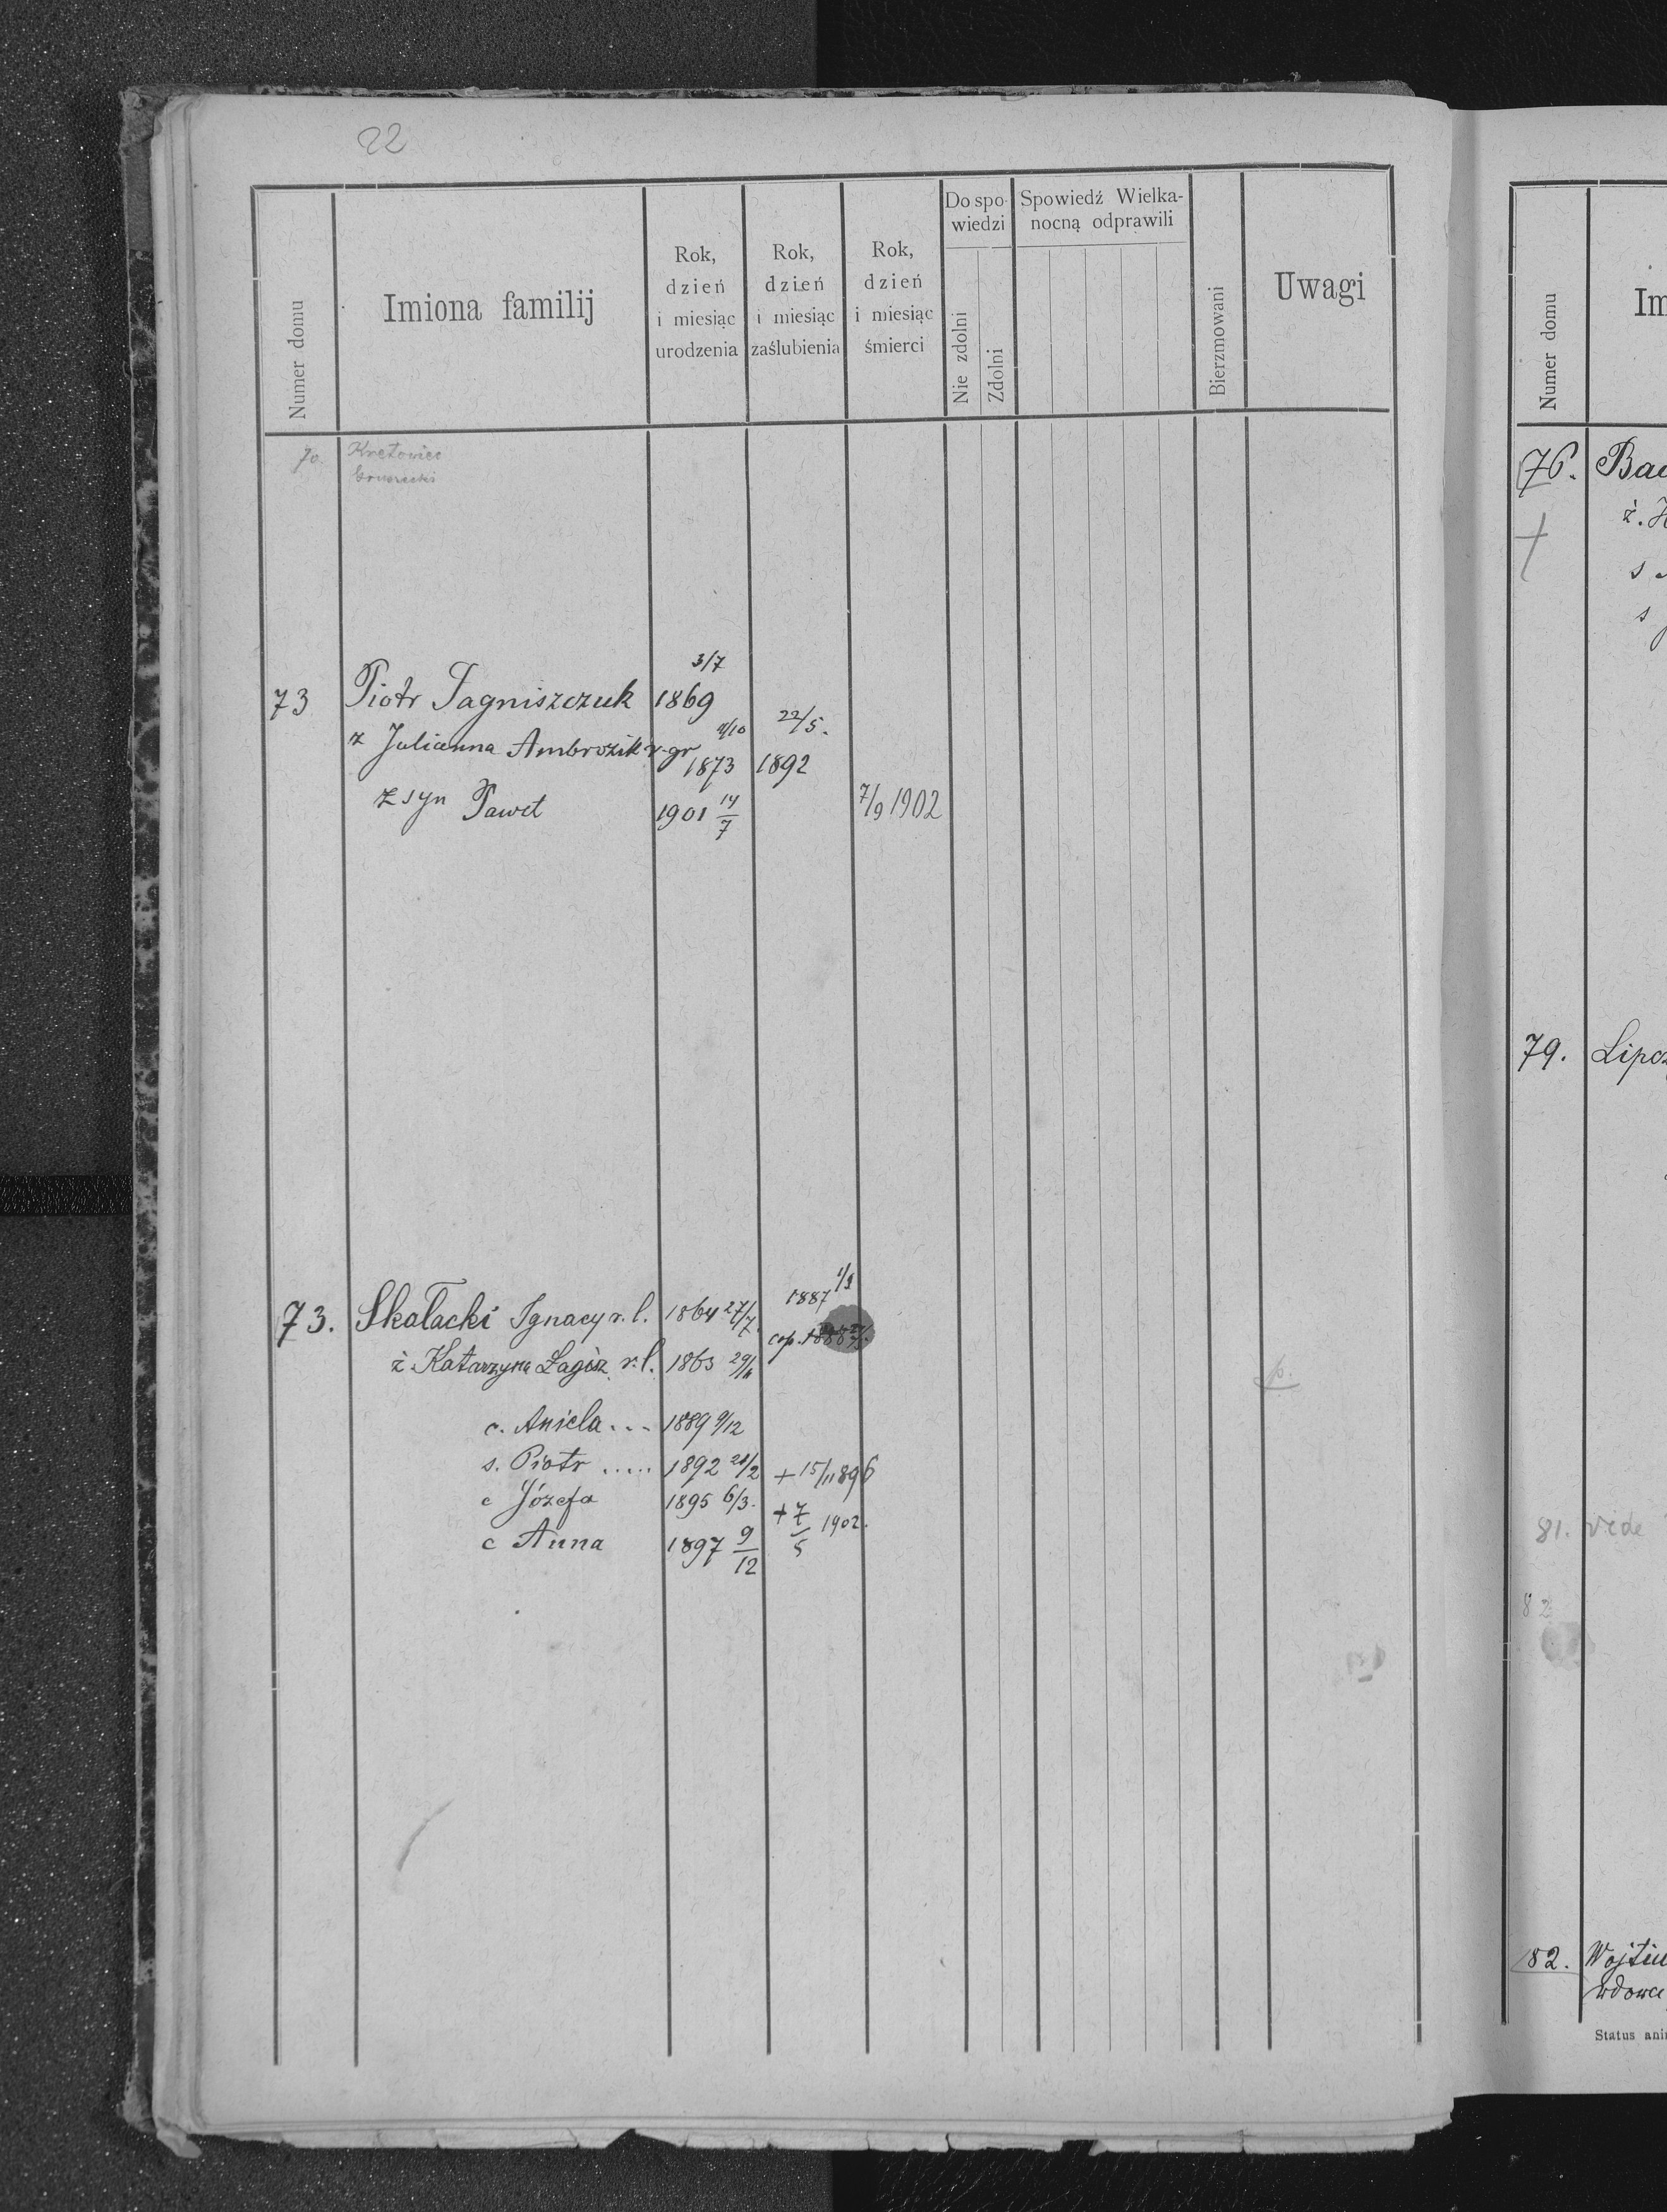 22
Numer domu
Imiona familij
Rok,
dzień
i miesiąc
urodzenia
Rok,
dzień
i miesiąc
zaślubienia
Rok,
dzień
i miesiąc
śmierci
Do spo-
wiedzi
Nie zdolni
Zdolni
Spowiedź Wielka-
nocną odprawili
Bierzmowani
Uwagi
70. Kretowiec
3/7
73 Piotr Jagniszczuk 1869
ż Julianna Ambrozik r. gr 1873 22/5. 1892
z syn Paweł 1901 14/7 7/9 1902
73. Skałacki Ignacy r. l. 1864 27/7. 1887 1/9
cop. 1888
ż Katarzyna Łagisz r. l. 1863
c. Aniela ... 1889 9/12
s. Piotr ..... 1892 + 15/11 896
c Józefa 1895 6/3.
+ 7/5 1902.
c Anna 1897 9/12
Numer domu
Im
76. Bac
ż.
s
s
79. Lipcz
81. vide
82
82. Wojtiu
wdowa
Status ani